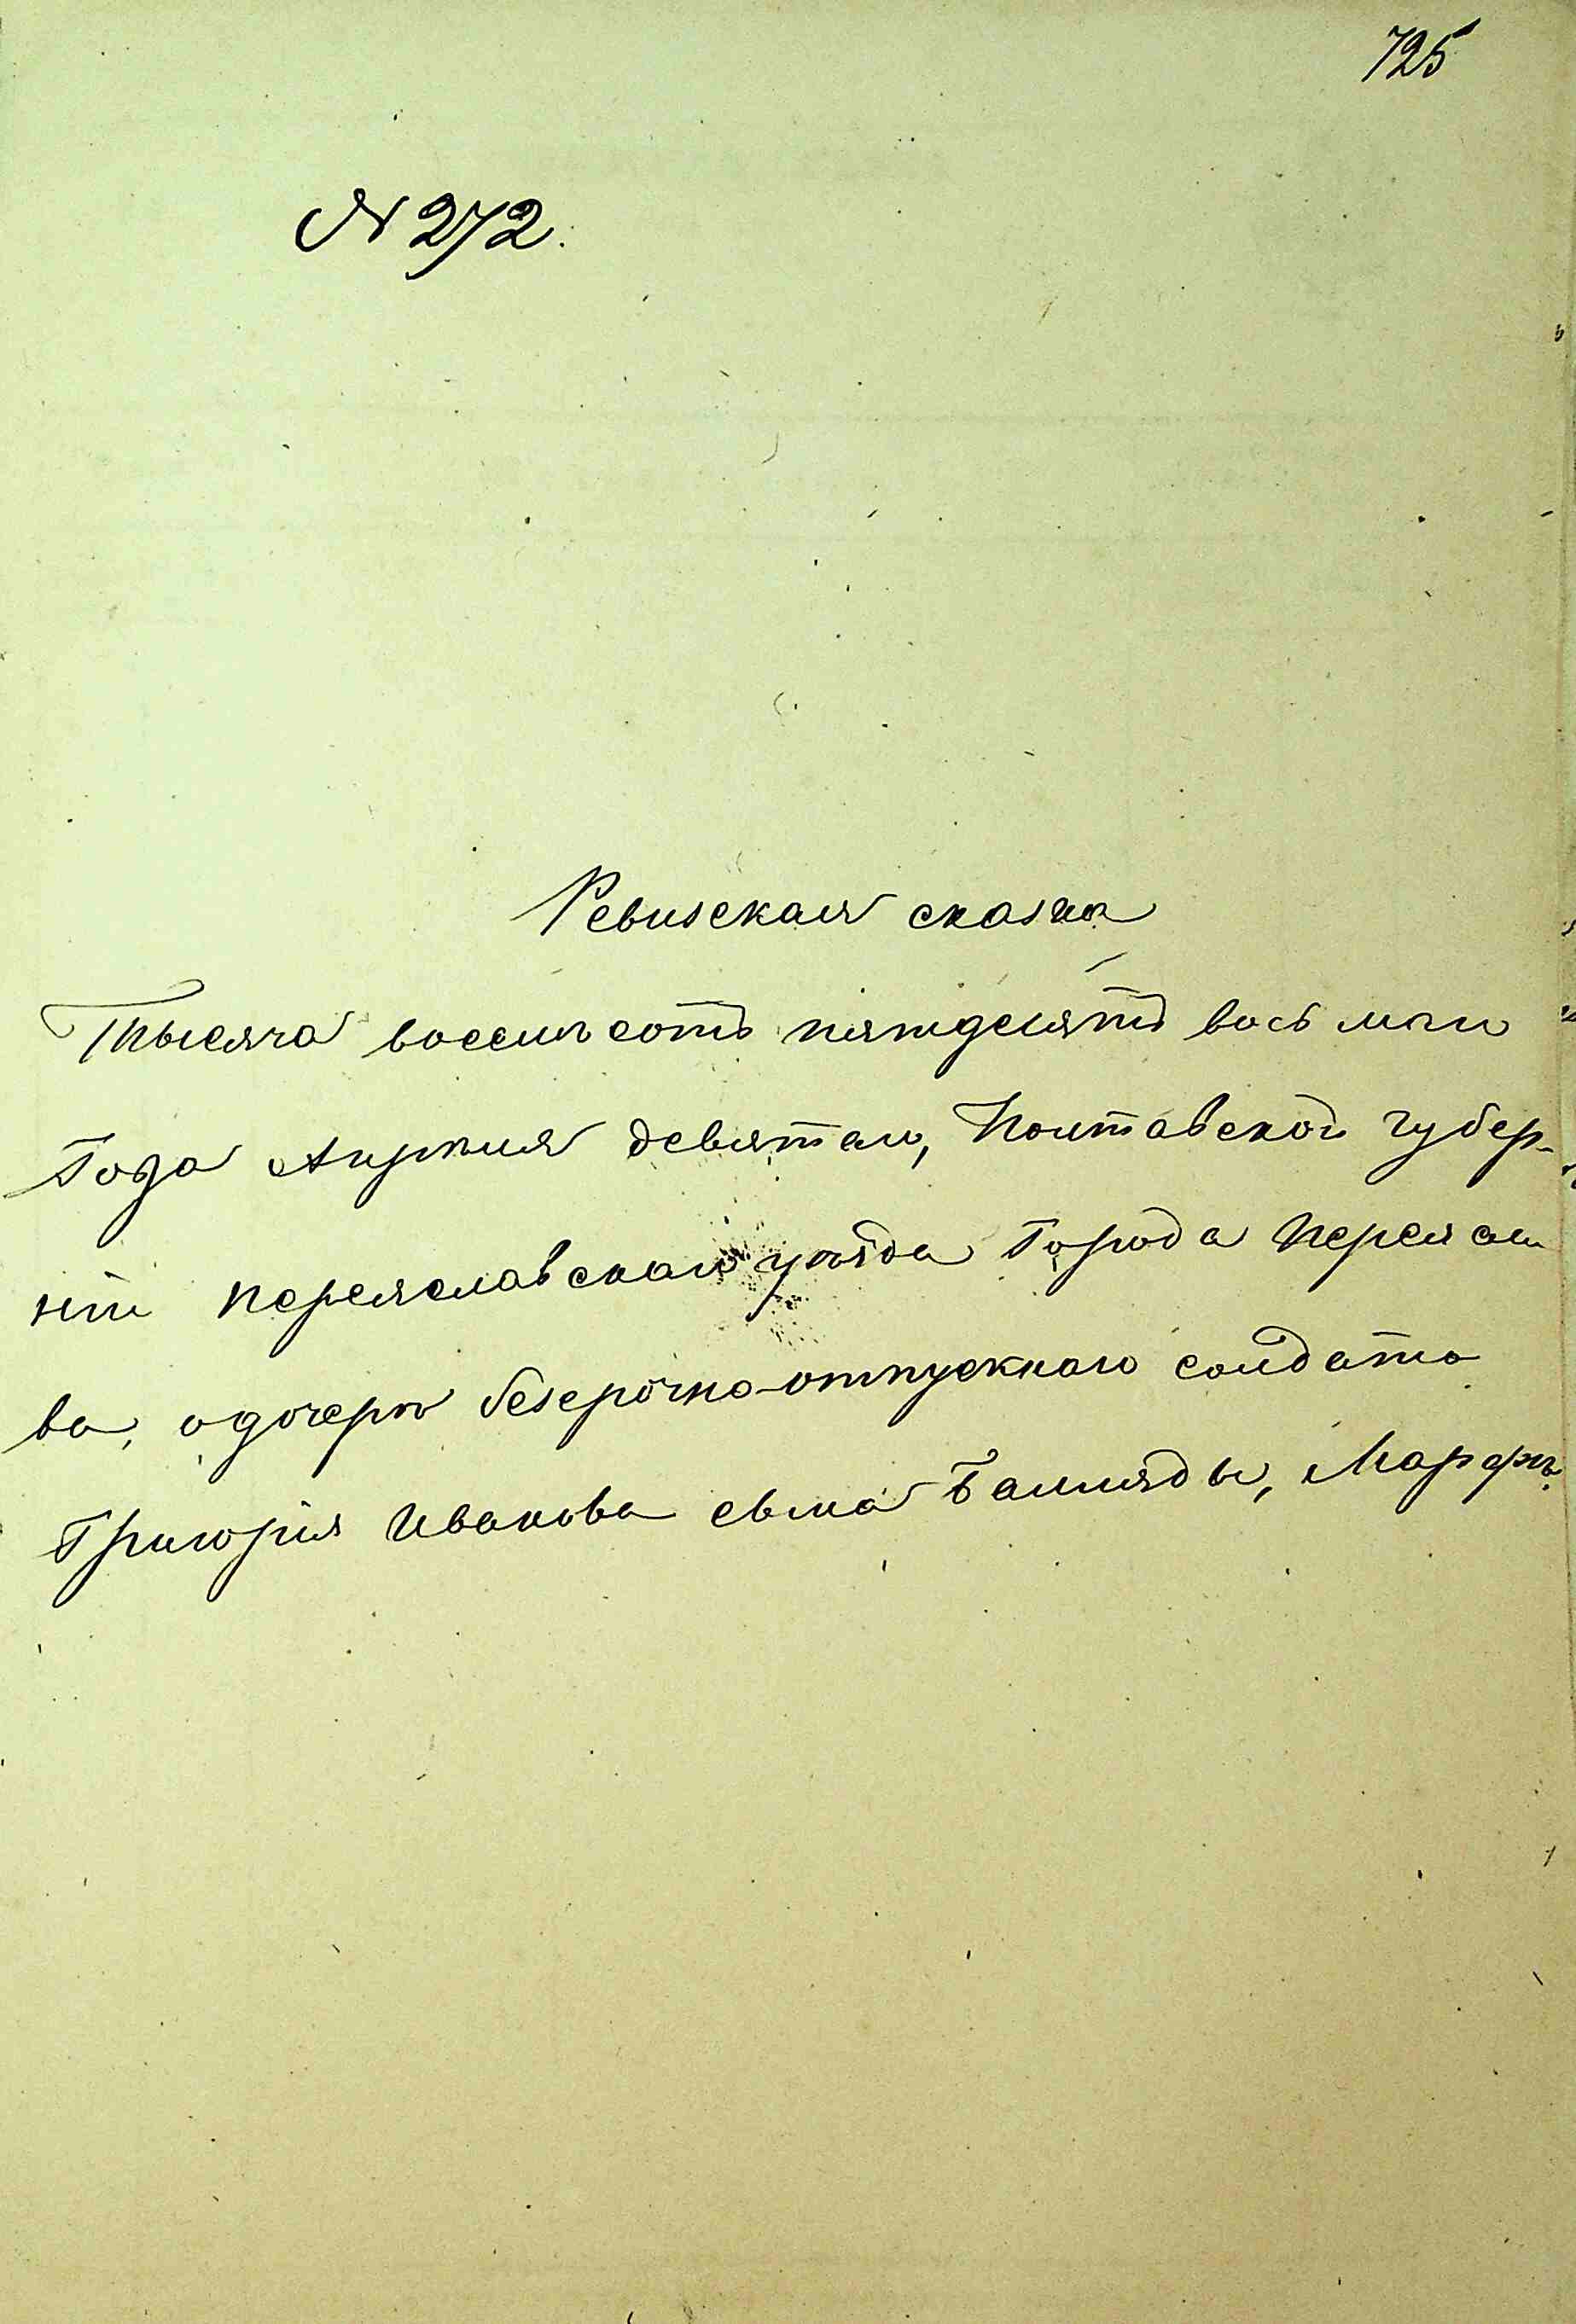 725
N 272.
Ревизская сказка
Тысяча восемьсотъ пятдесятъ восьмаго
Года Апрѣля девятаго, Полтавской губер-
ніи Переяславскаго уѣзда Города Переясла
ва, о дочерѣ безсрочно-отпускнаго солдата
Григорія Иванова сына, Марфѣ.